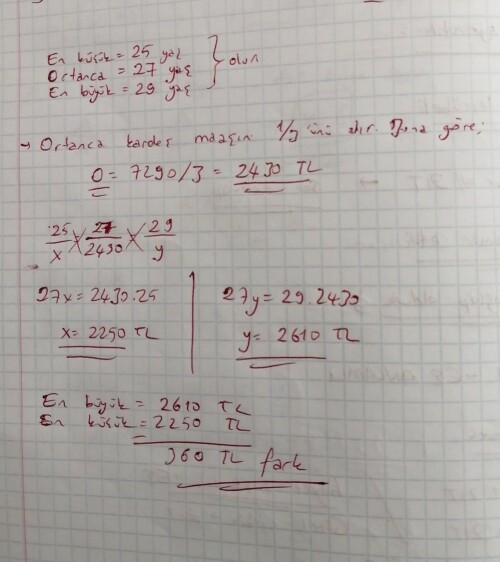 En küçük = 25 yaş
Ortanca = 27 yaş } olun
En büyük = 29 yaş
→ Ortanca kardeş maaşın 1/3 ünü alır. Buna göre;
O = 7290/3 = 2430 TL
25/x = 27/2430 = 29/y
27x = 2430.25
x = 2250 TL
27y = 29.2430
y = 2610 TL
En büyük = 2610 TL
En küçük = 2250 TL
360 TL fark